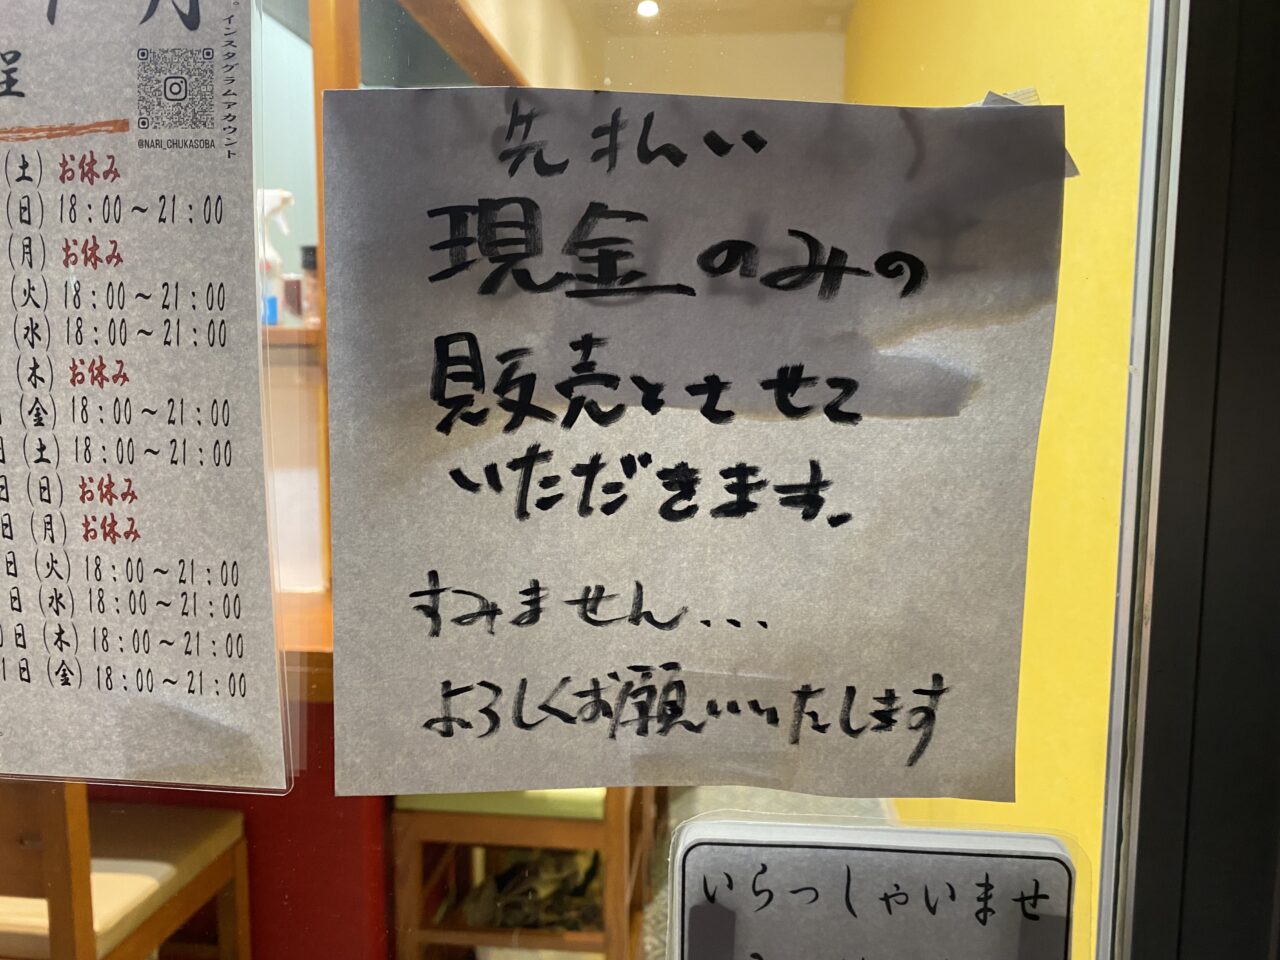 月
程
インスタグラムアカウント
@NARI_CHUKASOBA
(土) お休み
(日) 18:00～21:00
(月) お休み
(火) 18:00～21:00
(水) 18:00～21:00
(木) お休み
(金) 18:00～21:00
日 (土) 18:00～21:00
日 (日) お休み
日 (月) お休み
日 (火) 18:00～21:00
日 (水) 18:00～21:00
0日 (木) 18:00～21:00
1日 (金) 18:00～21:00
先払い
現金のみの
販売とさせて
いただきます。
すみません...
よろしくお願いいたします
いらっしゃいませ